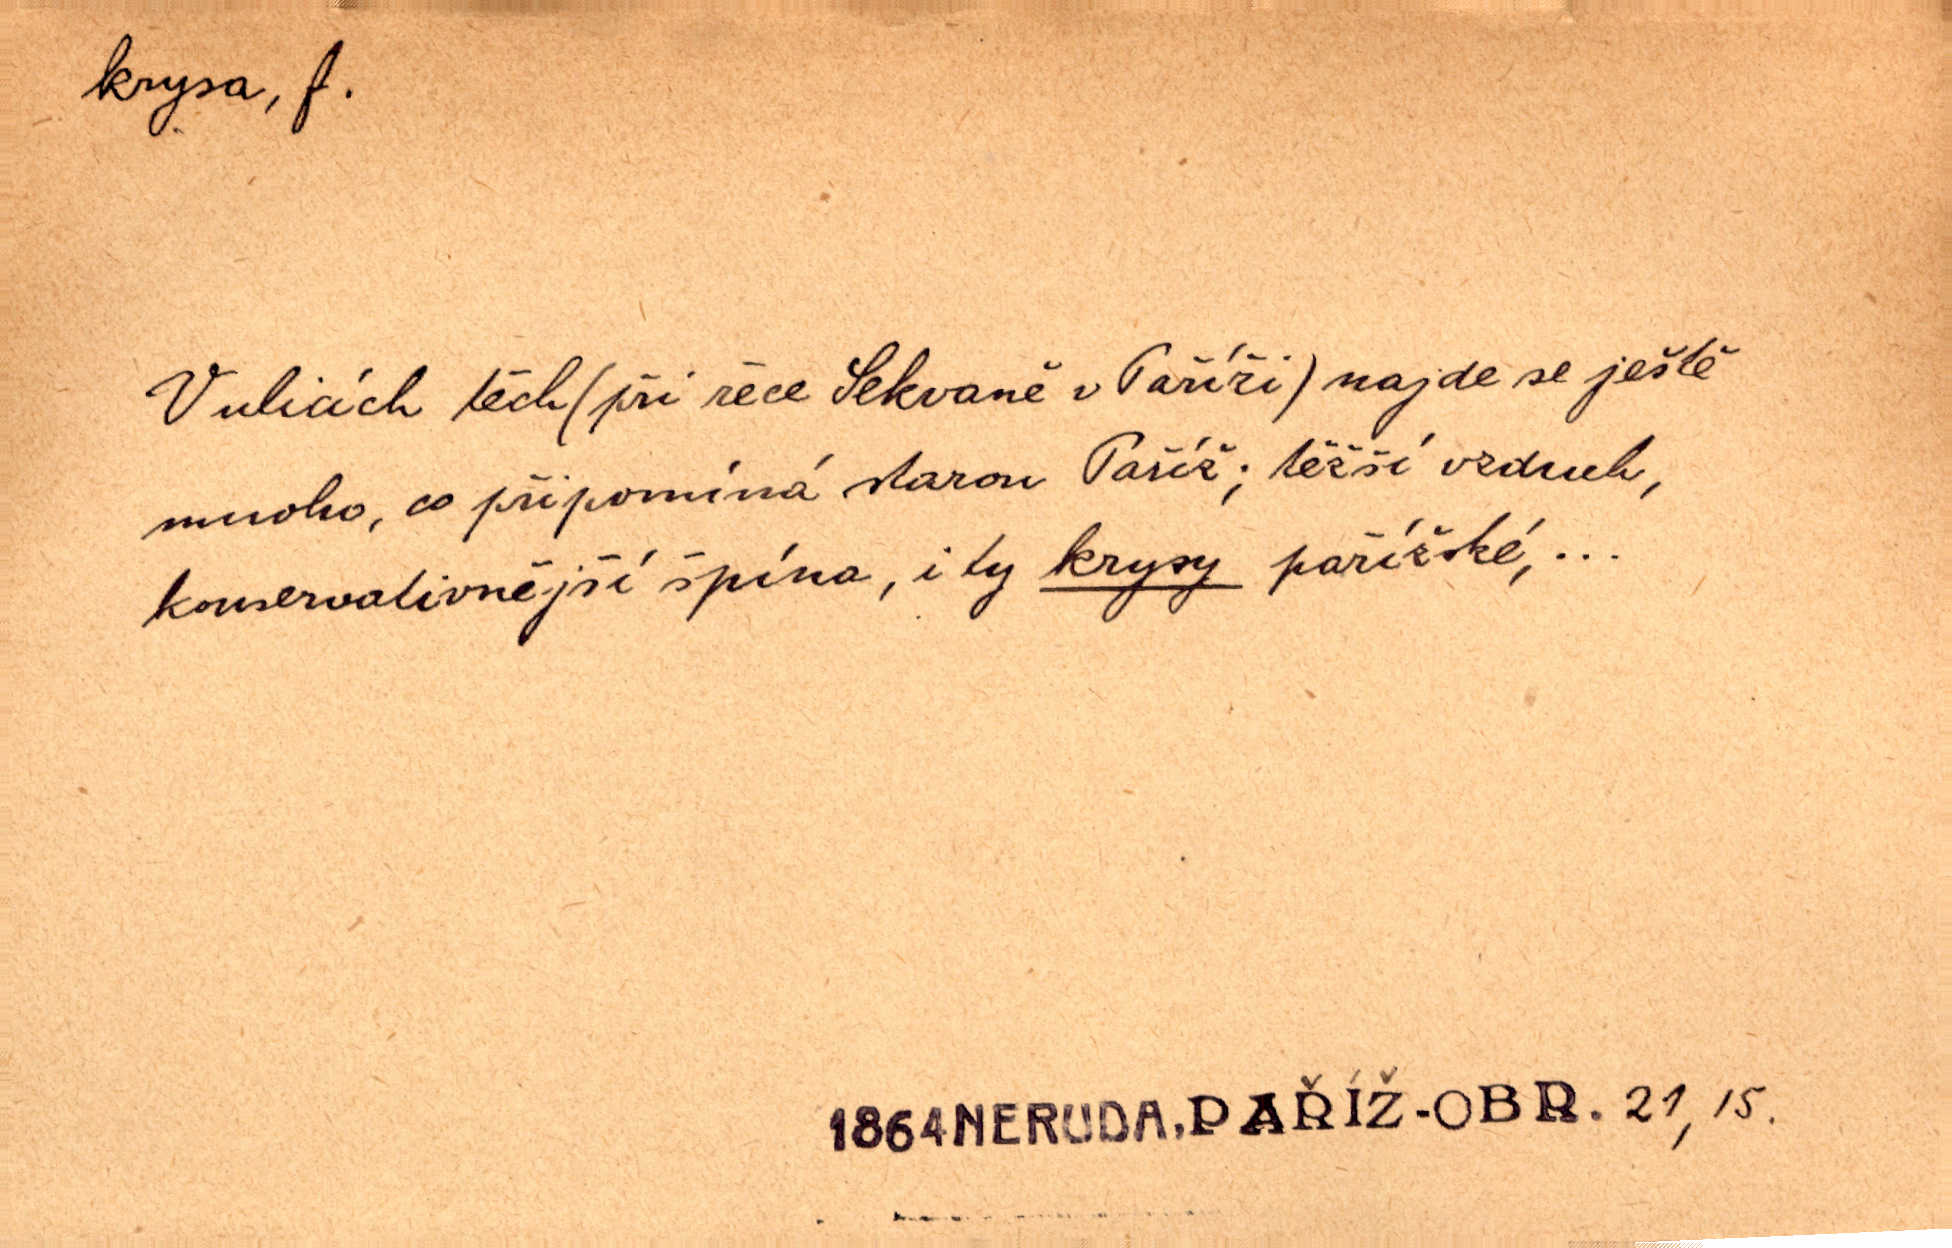 krysa, f.
V ulicích těch (při řece Sekvaně v Paříži) najde se ještě
mnoho, co připomíná starou Paříž; těžší vzduch,
konservativnější špína, i ty krysy pařížské, ...
1864 NERUDA, PAŘÍŽ-OBR. 21, 15.